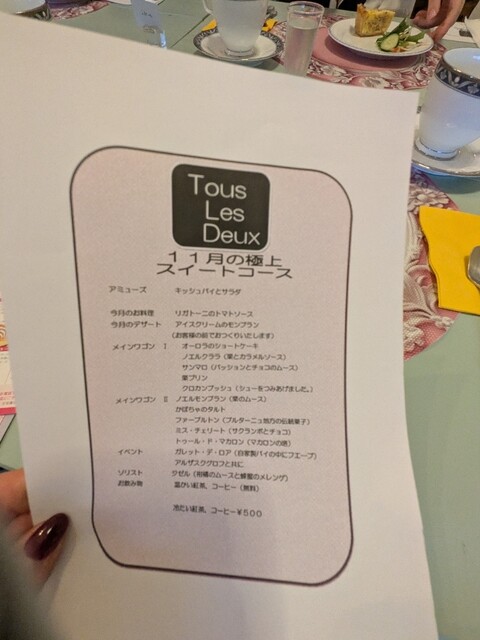 Tous
Les
Deux
11月の極上
スイートコース
アミューズ キッシュパイとサラダ
今月のお料理 リガトーニのトマトソース
今月のデザート アイスクリームのモンブラン
(お客様の前でおつくりいたします)
メインワゴン Ⅰ オーロラのショートケーキ
ノエルクララ (栗とカラメルソース)
サンマロ (パッションとチョコのムース)
栗プリン
クロカンブッシュ (シューをつみあげました。)
メインワゴン Ⅱ ノエルモンブラン (栗のムース)
かぼちゃのタルト
ファーブルトン (ブルターニュ地方の伝統菓子)
ミス・チェリート (サクランボとチョコ)
トゥール・ド・マカロン (マカロンの塔)
イベント ガレット・デ・ロア (自家製パイの中にフエーブ)
アルザスクグロフと共に
ソリスト クゼル (柑橘のムースと蜂蜜のメレンゲ)
お飲み物 温かい紅茶、コーヒー (無料)
冷たい紅茶、コーヒー¥500